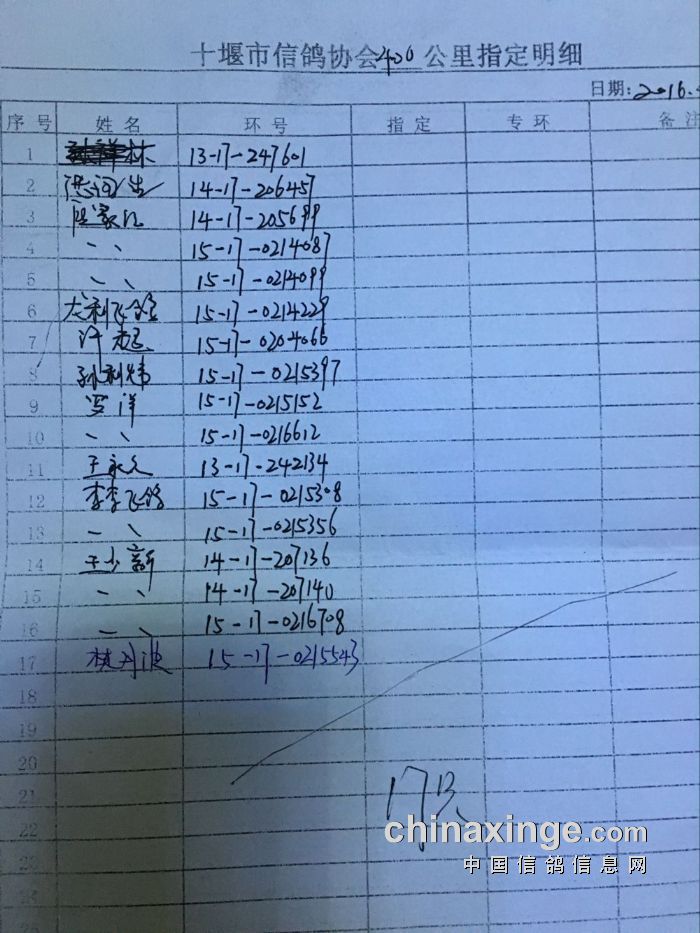 十堰市信鸽协会400公里指定明细
日期:2016.
序号 姓名 环号 指定 专环 备注
1 林 13-17-247601
2 洪河生 14-17-206457
3 14-17-205699
4 〃 15-17-0214087
5 〃 15-17-0214099
6 大利飞鸽 15-17-0214229
7 许 15-17-0204066
8 孙利炜 15-17-0215397
9 洋 15-17-0215152
10 〃 15-17-0216612
11 于永久 13-17-242134
12 李李飞鸽 15-17-0215308
13 〃 15-17-0215356
14 王少新 14-17-207136
15 〃 14-17-207140
16 〃 15-17-0216708
17 林丹波 15-17-0215543
18
19
20
21
22
17只
chinaxinge.com
中国信鸽信息网